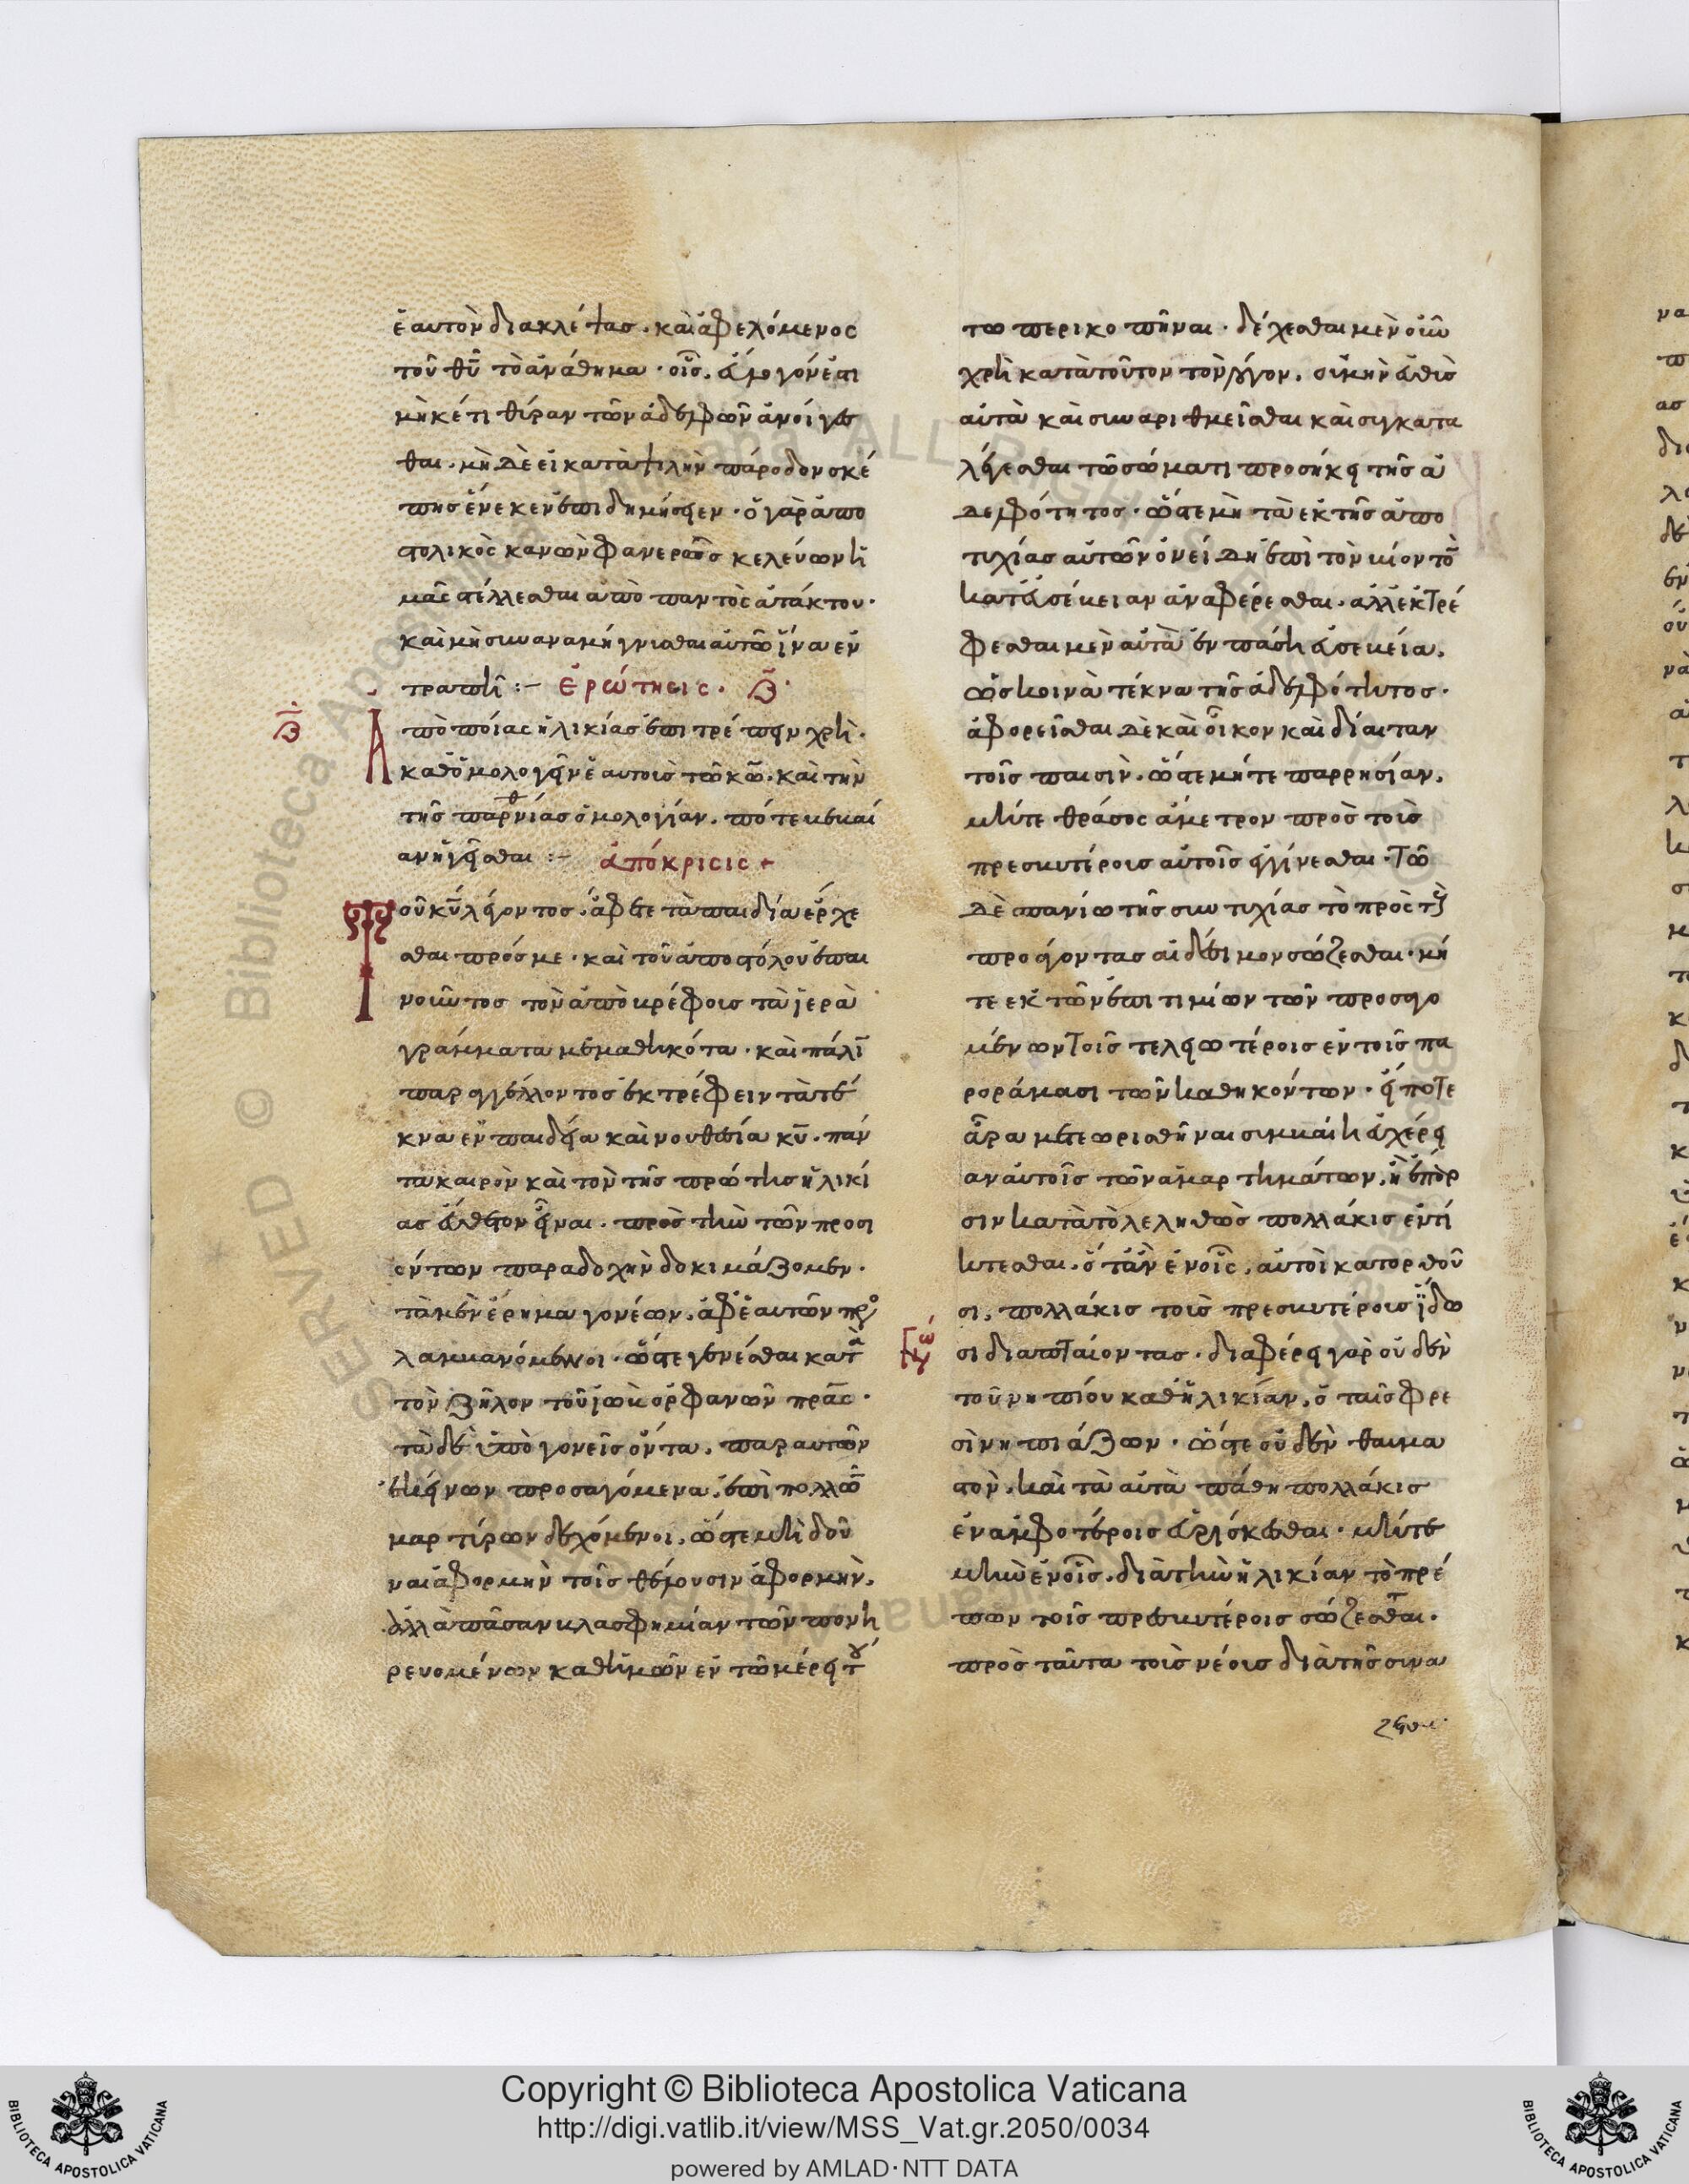 ἑαυτὸν διακλέψας. καὶ ἀφελόμενος
τοῦ θῦ τὸ ἀνάθημα. οἷς, ἄξιον ἐστι
μηκέτι θύραν τῶν ἀδελφῶν ἀνοίγεσ
θαι. μὴ δὲ εἰ κατὰ ψιλὴν πάροδον σκέ
πης ἕνεκεν ἐπιδημήσειεν. ὁ γὰρ ἀπο
στολικὸς κανὼν φανερὸς κελεύων ἡ
μᾶς στέλλεσθαι ἀπὸ παντὸς ἀτάκτου.
καὶ μὴ συναναμήγνυσθαι αὐτῶ ἵνα ἐν
τραπῆ :– ἐρώτησις. β.
β Ἀπὸ ποίας ἡλικίας ἐπιτρέπειν χρὴ.
καθομολογεῖν ἑαυτοὺς τῶ κῶ. καὶ τὴν
τῆς παρθνίας ὁμολογίαν, πότε βεβαί
αν ἡγεῖσθαι :– ἀπόκρισις
Τοῦ κῦ λέγοντος, ἄφετε τὰ παιδία ἔρχε
σθαι πρός με. καὶ τοῦ ἀποστόλου ἐπαι
νοῦντος τὸν ἀπὸ βρέφους τὰ ἱερὰ
γράμματα μεμαθηκότα. καὶ πάλῑ
παραγγέλλοντος ἐκτρέφειν τὰ τέ
κνα ἐν παιδεία καὶ νουθεσία κῦ. πάν
τα καιρὸν καὶ τὸν τῆς πρώτης ἡλικί
ας εὔθετον εἶναι. πρὸς τὴν τῶν προσι
όντων παραδοχὴν δοκιμάζομεν.
τὰ μὲν ἔρημα γονέων, ἀφ' ἑαυτῶν προσ
λαμβανόμενοι. ὥστε γενέσθαι κατὰ
τὸν ζῆλον τοῦ ἰὼβ ὀρφανῶν πρᾶς.
τὰ δὲ ὑπὸ γονεῖς ὄντα, παρ αὐτῶν
ἐκείνων προσαγόμενα, ἐπὶ πολλῶν
μαρτύρων δεχόμενοι, ὥστε μὴ δοῦ
ναι ἀφορμὴν τοῖς θέλουσιν ἀφορμὴν.
ἀλλὰ πᾶσαν βλασφημίαν τῶν πονη
ρευομένων καθ' ἡμῶν ἐν τῶ μέρει τού
τω περικοπῆναι. δέχεσθαι μὲν οὖν
χρὴ κατὰ τοῦτον τὸν λόγον. οὐ μὴν εὐθὺς
αὐτὰ καὶ συναριθμεῖσθαι καὶ συγκατα
λέγεσθαι τῶ σώματι προσήκει τῆς ἀ
δελφότητος. ὥστε μὴ τὰ ἐκ τῆς ἀπο
τυχίας αὐτῶν ὀνείδη ἐπὶ τὸν βίον τὸν
κατ' εὐσέβειαν ἀναφέρεσθαι. ἀλλ' ἐκτρέ
φεσθαι μὲν αὐτὰ ἐν πάση εὐσεβεία,
ὡς κοινὰ τέκνα τῆς ἀδελφότητος.
ἀφορεῖσθαι δὲ καὶ οἶκον καὶ δίαιταν
τοῖς παισὶν. ὥστε μήτε παρρησίαν,
μήτε θράσος ἄμετρον πρὸς τοὺς
πρεσβυτέρους αὐτοῖς ἐγγίνεσθαι. τῶ
δὲ σπανίω τῆς συντυχίας τὸ πρὸς τοὺς
προάγοντας αἰδέσιμον σώζεσθαι. μή
τε ἐκ τῶν ἐπιτιμίων τῶν προσαγο
μένων τοῖς τελειωτέροις ἐν τοῖς πα
ροράμασι τῶν καθηκόντων. εἴποτε
ἄρα μετεωρισθῆναι συμβαίη εὐχέρει
αν αὐτοῖς τῶν ἁμαρτημάτων, ἢ ἔπαρ
σιν κατὰ τὸ λεληθὸς πολλάκις ἐντί
κτεσθαι. ὅταν ἐν οἷς, αὐτοὶ κατορθοῦ
σι, πολλάκις τοὺς πρεσβυτέρους ἴδω
σι διαπταίοντας. διαφέρει γὰρ οὐδὲν
τοῦ νηπίου καθ' ἡλικίαν, ὁ ταῖς φρε
σὶ νηπιάζων. ὥστε οὐδὲν θαυμα
στὸν, καὶ τὰ αὐτὰ πάθη πολλάκις
ἐν ἀμφοτέροις εὑρίσκεσθαι. μήτε
μὴν ἐν οἷς, διὰ τὴν ἡλικίαν τὸ πρέ
πον τοῖς πρεσβυτέροις σώζεσθαι.
πρὸς ταῦτα τοὺς νέους διὰ τῆς συνα
Copyright © Biblioteca Apostolica Vaticana
http://digi.vatlib.it/view/MSS_Vat.gr.2050/0034
powered by AMLAD·NTT DATA